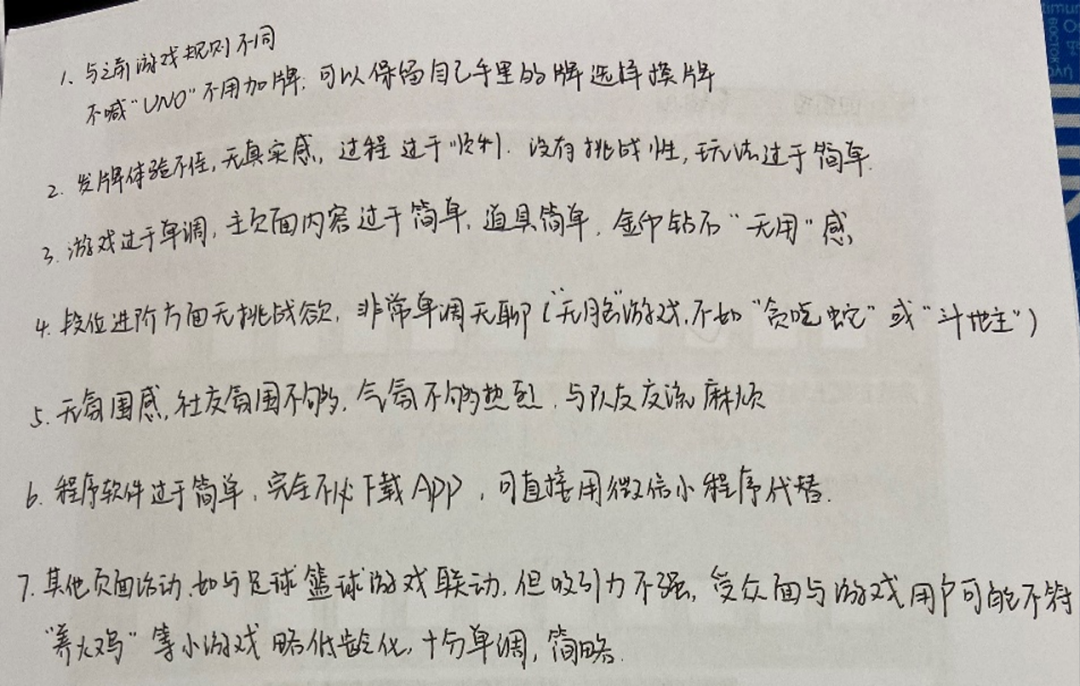 1. 与之前游戏规则不同
不喊"UNO"不用加牌. 可以保留自己手里的牌选择换牌
2. 发牌体验不佳,无真实感,过程过于顺利. 没有挑战性,玩法过于简单.
3. 游戏过于单调,主页面内容过于简单,道具简单. 金币钻石"无用"感
4. 段位进阶方面无挑战欲, 非常单调无聊("无脑"游戏,不如"贪吃蛇"或"斗地主")
5. 无氛围感,社交氛围不够,气氛不够热烈,与队友交流麻烦
6. 程序软件过于简单,完全不必下载APP,可直接用微信小程序代替.
7. 其他页面活动,如与足球篮球游戏联动,但吸引力不强,受众面与游戏用户可能不符
"养火鸡"等小游戏略低龄化,十分单调,简略.